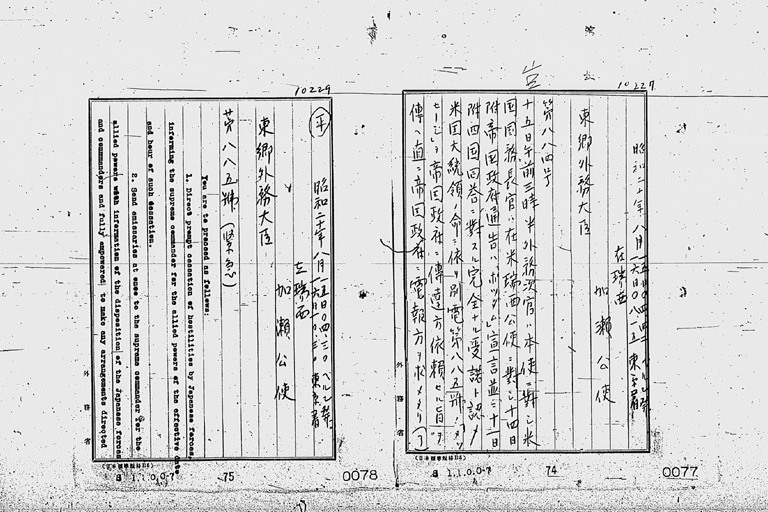 10227
昭和二十年 八月
在瑞西
加瀬公使
東郷外務大臣
第八八四号
十五日午前三時半外務次官ハ本使ニ対シ米
国国務長官ハ在米瑞西公使ニ対シ十四日
附帝国政府通告ハポツダム宣言並ニ十一日
附四国回答ニ対スル完全ナル受諾ト認メ
米国大統領ノ命ニ依リ別電第八八五号
セージヲ帝国政府ニ伝達方依頼セル旨ヲ
傳ヘ直ニ帝国政府ニ電報方ヲ求メタリ(了)
外務省
(日本標準規格B5)
S 1.1.0.0-7
74
0077
10229
(平)
昭和二十年 八月
在瑞西
加瀬公使
東郷外務大臣
第八八五號(緊急)
You are to proceed as follows:
1. Direct prompt cessation of hostilities by Japanese forces,
informing the supreme commander for the allied powers of the effective date
and hour of such cessation.
2. Send emissaries at once to the supreme commander for the
allied powers with information of the disposition of the Japanese forces
and commanders and fully empowered to make any arrangements directed
外務省
(日本標準規格B5)
S 1.1.0.0-7
75
0078